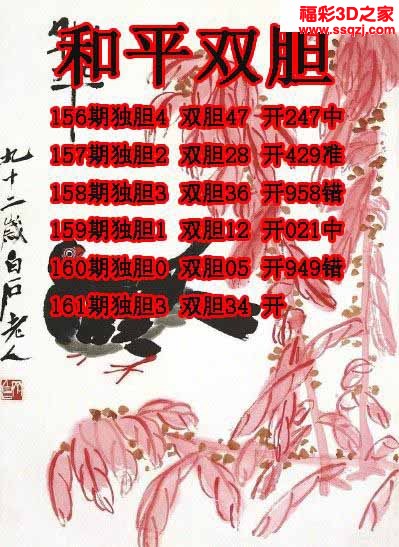 福彩3D之家
www.ssqzj.com
和平双胆
156期独胆4 双胆47 开247中
157期独胆2 双胆28 开429准
158期独胆3 双胆36 开958错
159期独胆1 双胆12 开021中
160期独胆0 双胆05 开949错
161期独胆3 双胆34 开
九十二岁白石老人